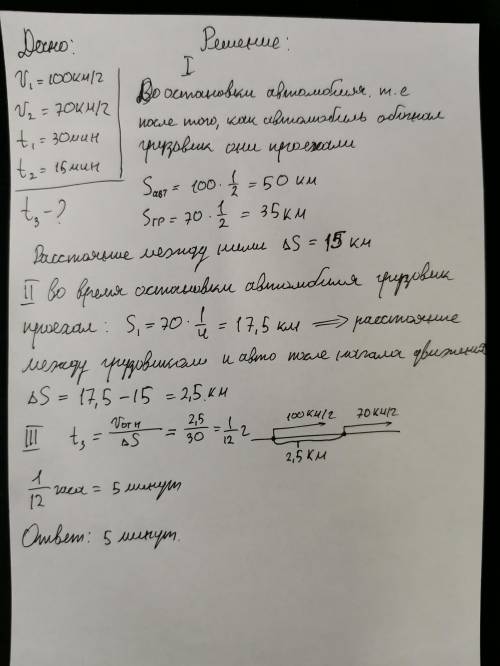 Дано:
Решение:
V₁ = 100км/г
V₂ = 70км/г
t₁ = 30мин
t₂ = 15мин
t₃ - ?
I
До остановки автомобиля, т.е
после того, как автомобиль обогнал
грузовик они проехали
Sавт = 100 · 1/2 = 50 км
Sгр = 70 · 1/2 = 35 км
Расстояние между ними ΔS = 15 км
II во время остановки автомобиля грузовик
проехал: S₁ = 70 · 1/4 = 17,5 км ⟹ расстояние
между грузовиком и авто после начала движения
ΔS = 17,5 - 15 = 2,5 км
III t₃ = Vотн/ΔS = 2,5/30 = 1/12 г
100км/г 70км/г
2,5 км
1/12 часа = 5 минут
Ответ: 5 минут.